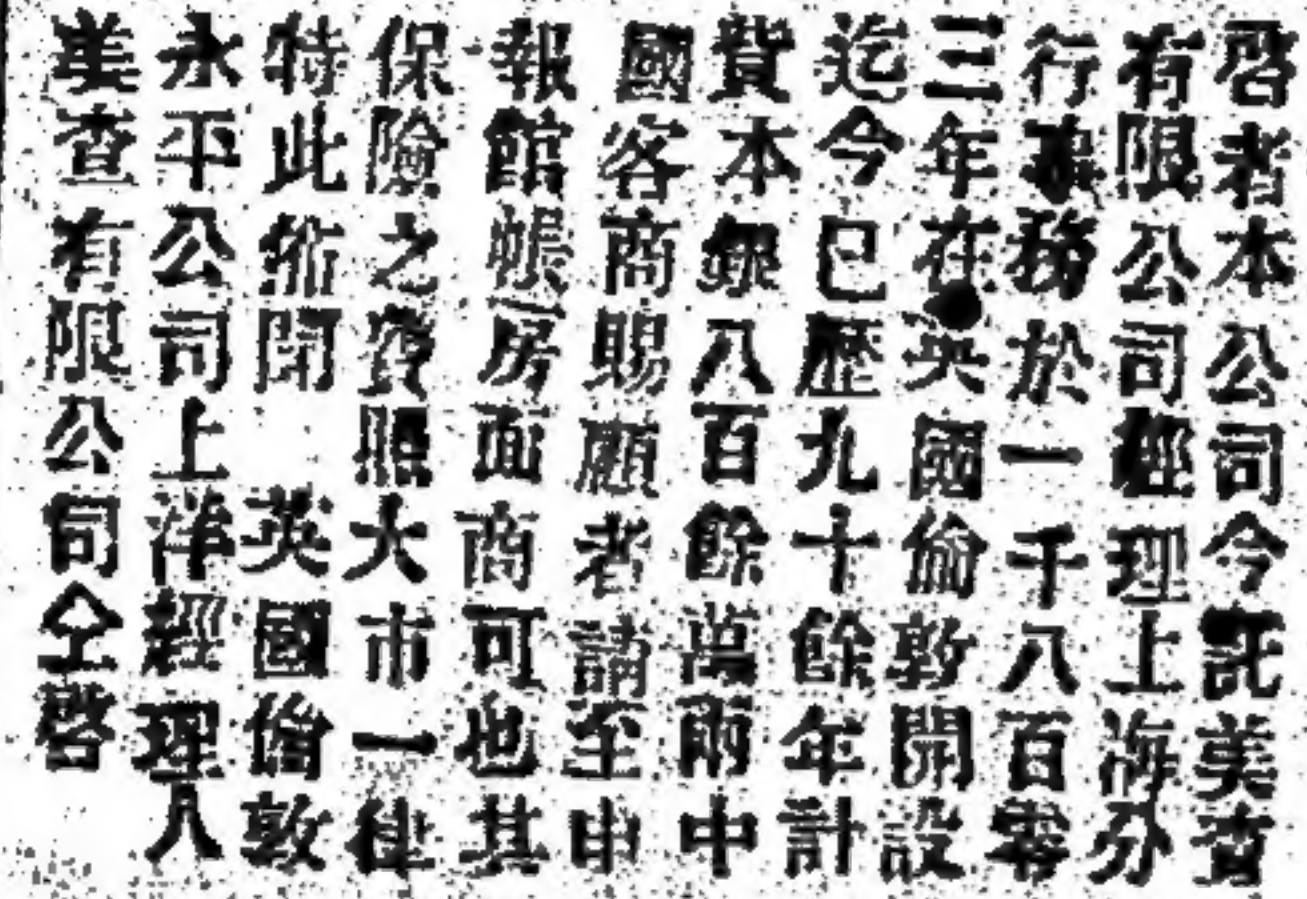 啓者本公司今託美查
有限公司經理上海分
行事務於一千八百零
三年在英國倫敦開設
迄今已歷九十餘年計
資本銀八百餘萬兩中
國客商賜顧者請至申
報館帳房面商可也其
保險之資照大市一律
特此佈聞 英國倫敦
永平公司上洋經理人
美查有限公司仝啓